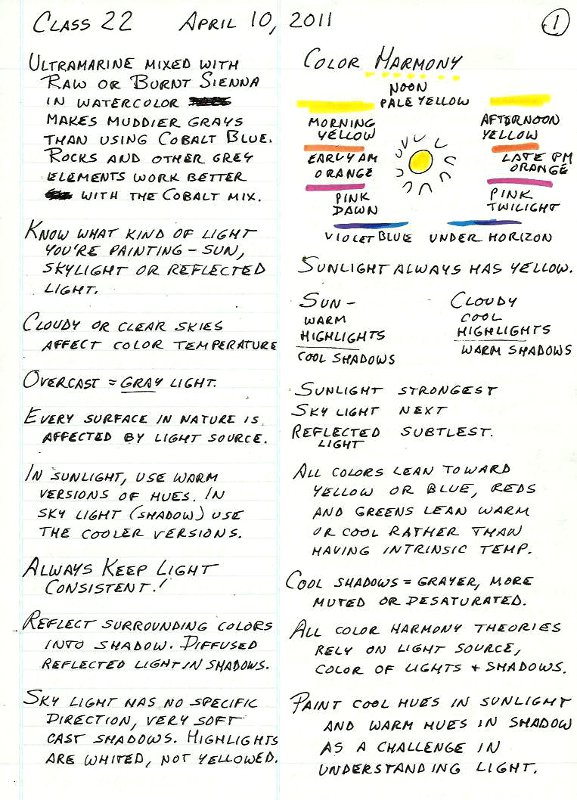 CLASS 22 APRIL 10, 2011 1
ULTRAMARINE MIXED WITH
RAW OR BURNT SIENNA
IN WATERCOLOR
MAKES MUDDIER GRAYS
THAN USING COBALT BLUE.
ROCKS AND OTHER GREY
ELEMENTS WORK BETTER
WITH THE COBALT MIX.
KNOW WHAT KIND OF LIGHT
YOU'RE PAINTING - SUN,
SKYLIGHT OR REFLECTED
LIGHT.
CLOUDY OR CLEAR SKIES
AFFECT COLOR TEMPERATURE
OVERCAST = GRAY LIGHT.
EVERY SURFACE IN NATURE IS
AFFECTED BY LIGHT SOURCE.
IN SUNLIGHT, USE WARM
VERSIONS OF HUES. IN
SKY LIGHT (SHADOW) USE
THE COOLER VERSIONS.
ALWAYS KEEP LIGHT
CONSISTENT!
REFLECT SURROUNDING COLORS
INTO SHADOW. DIFFUSED
REFLECTED LIGHT IN SHADOWS.
SKY LIGHT HAS NO SPECIFIC
DIRECTION, VERY SOFT
CAST SHADOWS. HIGHLIGHTS
ARE WHITED, NOT YELLOWED.
COLOR HARMONY
NOON
PALE YELLOW
MORNING
YELLOW
AFTERNOON
YELLOW
EARLY AM
ORANGE
LATE PM
ORANGE
PINK
DAWN
PINK
TWILIGHT
VIOLET BLUE UNDER HORIZON
SUNLIGHT ALWAYS HAS YELLOW.
SUN-
WARM
HIGHLIGHTS
COOL SHADOWS
CLOUDY
COOL
HIGHLIGHTS
WARM SHADOWS
SUNLIGHT STRONGEST
SKY LIGHT NEXT
REFLECTED SUBTLEST.
LIGHT
ALL COLORS LEAN TOWARD
YELLOW OR BLUE, REDS
AND GREENS LEAN WARM
OR COOL RATHER THAN
HAVING INTRINSIC TEMP.
COOL SHADOWS = GRAYER, MORE
MUTED OR DESATURATED.
ALL COLOR HARMONY THEORIES
RELY ON LIGHT SOURCE,
COLOR OF LIGHTS + SHADOWS.
PAINT COOL HUES IN SUNLIGHT
AND WARM HUES IN SHADOW
AS A CHALLENGE IN
UNDERSTANDING LIGHT.